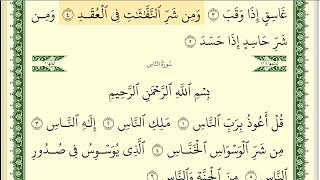 غَاسِقٍ إِذَا وَقَبَ ٣ وَمِن شَرِّ ٱلنَّفَّٰثَٰتِ فِى ٱلْعُقَدِ ٤ وَمِن
شَرِّ حَاسِدٍ إِذَا حَسَدَ ٥
سُورَةُ النَّاسِ
بِسْمِ ٱللَّهِ ٱلرَّحْمَٰنِ ٱلرَّحِيمِ
قُلْ أَعُوذُ بِرَبِّ ٱلنَّاسِ ١ مَلِكِ ٱلنَّاسِ ٢ إِلَٰهِ ٱلنَّاسِ ٣
مِن شَرِّ ٱلْوَسْوَاسِ ٱلْخَنَّاسِ ٤ ٱلَّذِى يُوَسْوِسُ فِى صُدُورِ
ٱلنَّاسِ ٥ مِنَ ٱلْجِنَّةِ وَٱلنَّاسِ ٦